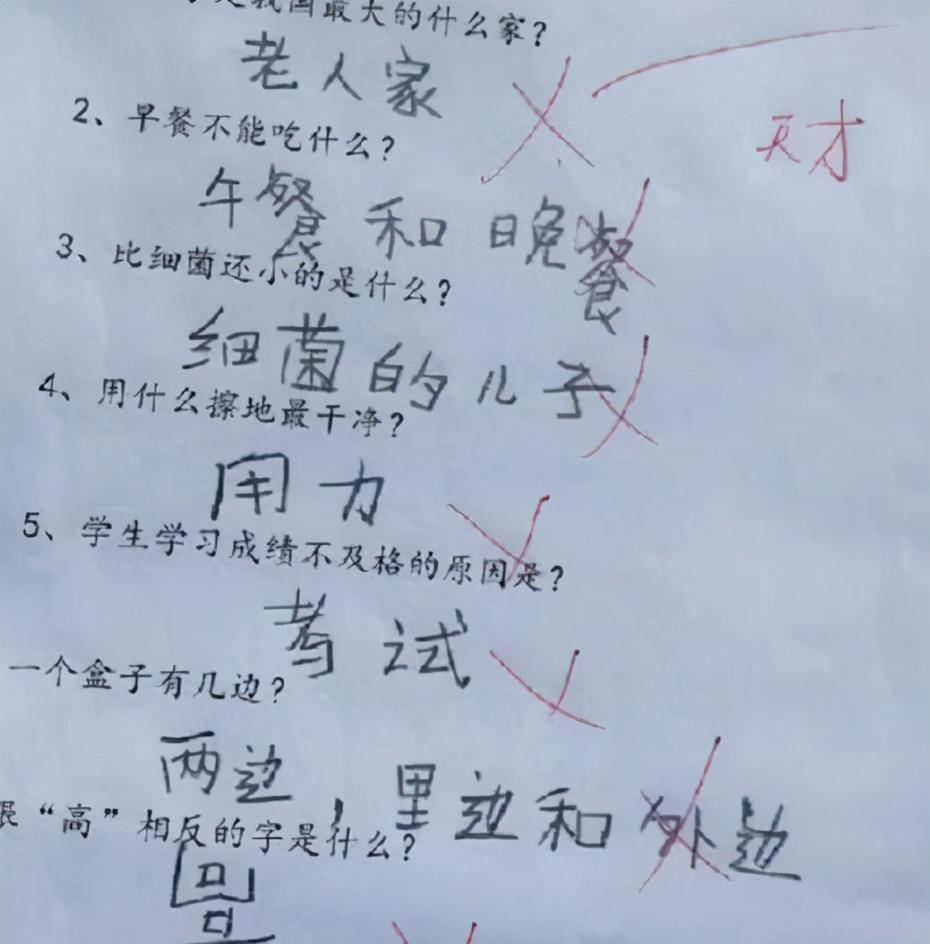 是我国最大的什么家?
老人家
天才
2、早餐不能吃什么?
午餐和晚餐
3、比细菌还小的是什么?
细菌的儿子
4、用什么擦地最干净?
用力
5、学生学习成绩不及格的原因是?
考试
一个盒子有几边?
两边,里边和外边
跟“高”相反的字是什么?